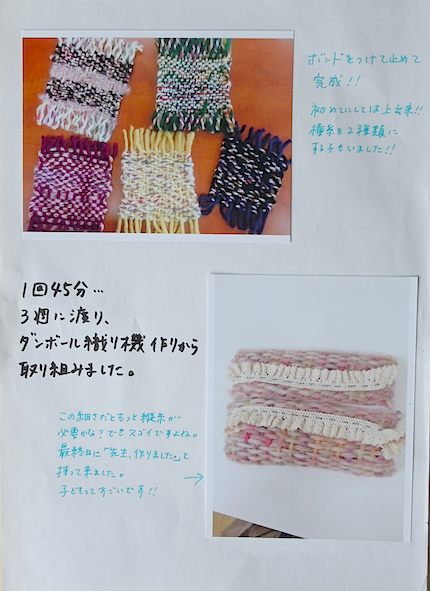 ボンドをつけて止めて
完成!!
初めてにしては上出来!!
横糸を2種類に
する子もいました!!
1回45分…
3週に渡り、
ダンボール織り機作りから
取り組みました。
この細さだともっと縦糸が
必要かな？でもスゴイですよね。
最終日に「先生、作りました。」と
持って来ました。
子どもってすごいです!!